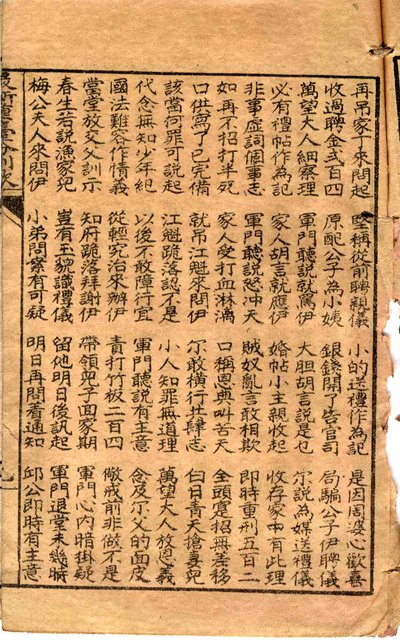 再吊家丁來問起 堅稱從前聘親儀 小的送禮作為記 是因周婆心歡喜
收過聘金式百四 原配公子為小姨 銀錢開了告官司 局騙公子伊聘儀
萬望大人細察理 軍門聽說就罵伊 大胆胡言說是乜 尔說為媒送禮儀
必有禮帖作為記 家人胡言就應伊 婚帖小主親收起 收存家中有此理
非事虛詞個事志 軍門聽說怒冲天 賊奴亂言敢相欺 即時重刑五百二
如再不招打半死 家人受打血淋漓 口稱恩典叫苦天 全頭寔招無差移
口供寫了已完備 就吊江魁來問伊 尔敢橫行廿肆志 白日青天搶妻兒
該當何罪可說起 江魁跪落認不是 小人知罪無道理 萬望大人放恩義
代念無知少年紀 以後不敢障行宜 軍門聽說有主意 念及尔父的面皮
國法難容作情義 從輕究治來辦伊 責打竹板二百四 儆戒前非做不是
當堂放交父訓示 知府跪落拜謝伊 帶領兒子面家期 軍門心內暗掛疑
春生若說漁家兒 豈有玉貌識禮儀 留他明日後訊起 軍門退堂未幾時
梅公夫人來問伊 小弟問案有可疑 明日再問看通知 邱公即時有主意